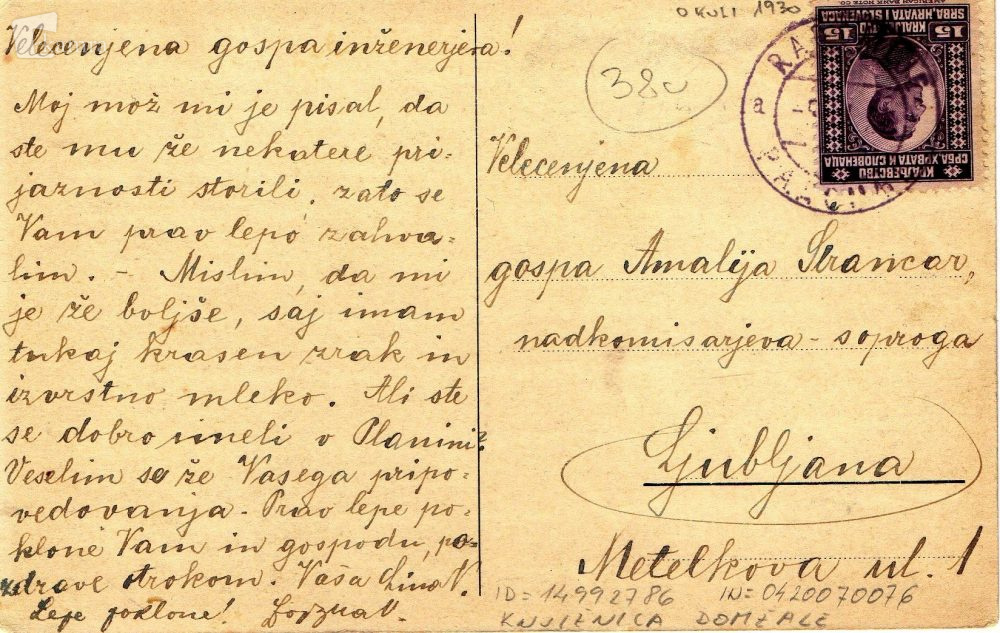 Velecenjena gospa inženerjeva!
Moj mož mi je pisal, da
ste mu že nekatere pri-
jaznosti storili, zato se
Vam prav lepo zahva-
lim. - Mislim, da mi
je že boljše, saj imam
tukaj krasen zrak in
izvrstno mleko. Ali ste
se dobro imeli v Planini?
Veselim se že Vašega pripo-
vedovanja. Prav lepe po-
klone Vam in gospodu, po-
zdrave otrokom. Vaša
Lepe poklone!
OKOLI 1930
380
15 KRALJEVSTVO 15
SRBA, HRVATA I SLOVENACA
КРАЉЕВСТВО
СРБА, ХРВАТА И СЛОВЕНАЦА
a
Velecenjena
gospa Amalija Strancar,
nadkomisarjeva - soproga
Ljubljana
Metelkova ul. 1
ID= 14992786 IN= 0420070076
KNJIŽNICA DOMŽALE